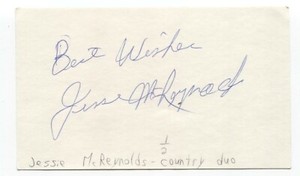 Best Wishes
Jesse McReynolds
1/2
Jessie McReynolds - country duo